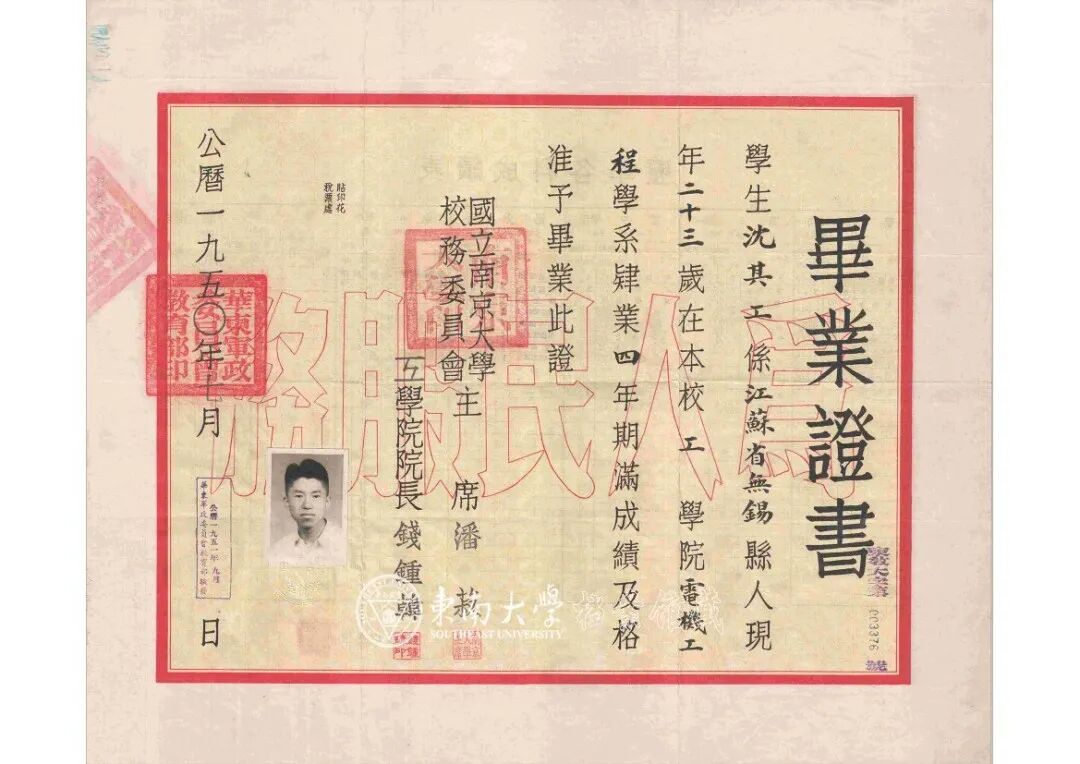 畢業證書
學生沈其工係江蘇省無錫縣人現
年二十三歲在本校工學院電機工
程學系肄業四年期滿成績及格
准予畢業此證
國立南京大學
校務委員會
主席潘菽
工學院院長錢鍾韓
貼印花
稅票處
公曆一九五〇年七月 日
華東軍政
教育部印
公曆一九五一年九月
華東軍政委員會教育部驗發
為人民服務
003376
號
東南大學
SOUTHEAST UNIVERSITY